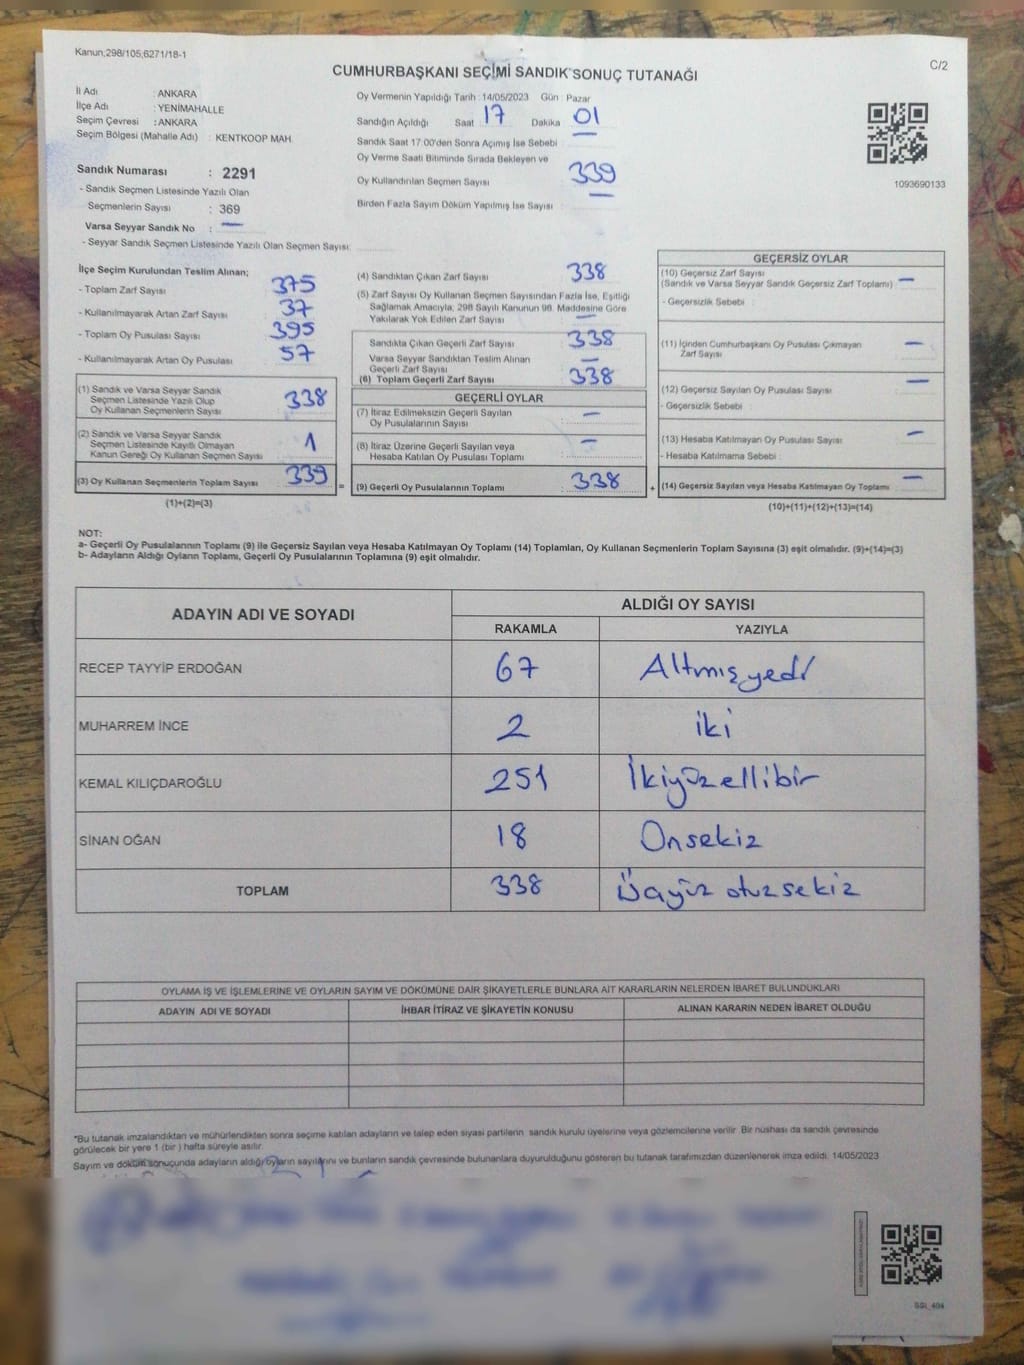 Kanun,298/105,6271/18-1
CUMHURBAŞKANI SEÇİMİ SANDIK SONUÇ TUTANAĞI
C/2
İl Adı : ANKARA
İlçe Adı : YENİMAHALLE
Seçim Çevresi : ANKARA
Seçim Bölgesi (Mahalle Adı) : KENTKOOP MAH
Oy Vermenin Yapıldığı Tarih : 14/05/2023 Gün : Pazar
Sandığın Açıldığı Saat 17 Dakika 01
Sandık Saat 17:00'den Sonra Açımış İse Sebebi —
Oy Verme Saati Bitiminde Sırada Bekleyen ve
Oy Kullandırılan Seçmen Sayısı 339
Birden Fazla Sayım Döküm Yapılmış İse Sayısı : —
1093690133
Sandık Numarası : 2291
- Sandık Seçmen Listesinde Yazılı Olan
Seçmenlerin Sayısı : 369
Varsa Seyyar Sandık No : —
- Seyyar Sandık Seçmen Listesinde Yazılı Olan Seçmen Sayısı:
İlçe Seçim Kurulundan Teslim Alınan;
- Toplam Zarf Sayısı 375
- Kullanılmayarak Artan Zarf Sayısı : 37
- Toplam Oy Pusulası Sayısı : 395
- Kullanılmayarak Artan Oy Pusulası : 57
(1) Sandık ve Varsa Seyyar Sandık
Seçmen Listesinde Yazılı Olup
Oy Kullanan Seçmenlerin Sayısı 338
(2) Sandık ve Varsa Seyyar Sandık
Seçmen Listesinde Kayıtlı Olmayan
Kanun Gereği Oy Kullanan Seçmen Sayısı 1
(3) Oy Kullanan Seçmenlerin Toplam Sayısı 339 =
(1)+(2)=(3)
(4) Sandıktan Çıkan Zarf Sayısı 338
(5) Zarf Sayısı Oy Kullanan Seçmen Sayısından Fazla İse, Eşitliği
Sağlamak Amacıyla, 298 Sayılı Kanunun 98. Maddesine Göre
Yakılarak Yok Edilen Zarf Sayısı —
Sandıkta Çıkan Geçerli Zarf Sayısı : 338
Varsa Seyyar Sandıktan Teslim Alınan
Geçerli Zarf Sayısı —
(6) Toplam Geçerli Zarf Sayısı 338
GEÇERLİ OYLAR
(7) İtiraz Edilmeksizin Geçerli Sayılan
Oy Pusulalarının Sayısı : —
(8) İtiraz Üzerine Geçerli Sayılan veya
Hesaba Katılan Oy Pusulası Toplamı : —
(9) Geçerli Oy Pusulalarının Toplamı 338 +
GEÇERSİZ OYLAR
(10) Geçersiz Zarf Sayısı
(Sandık ve Varsa Seyyar Sandık Geçersiz Zarf Toplamı) : —
- Geçersizlik Sebebi :
(11) İçinden Cumhurbaşkanı Oy Pusulası Çıkmayan
Zarf Sayısı —
(12) Geçersiz Sayılan Oy Pusulası Sayısı —
- Geçersizlik Sebebi :
(13) Hesaba Katılmayan Oy Pusulası Sayısı —
- Hesaba Katılmama Sebebi :
(14) Geçersiz Sayılan veya Hesaba Katılmayan Oy Toplamı —
(10)+(11)+(12)+(13)=(14)
NOT:
a- Geçerli Oy Pusulalarının Toplamı (9) ile Geçersiz Sayılan veya Hesaba Katılmayan Oy Toplamı (14) Toplamları, Oy Kullanan Seçmenlerin Toplam Sayısına (3) eşit olmalıdır. (9)+(14)=(3)
b- Adayların Aldığı Oyların Toplamı, Geçerli Oy Pusulalarının Toplamına (9) eşit olmalıdır.
ADAYIN ADI VE SOYADI
ALDIĞI OY SAYISI
RAKAMLA YAZIYLA
RECEP TAYYİP ERDOĞAN 67 Altmışyedi
MUHARREM İNCE 2 iki
KEMAL KILIÇDAROĞLU 251 İkiyüzellibir
SİNAN OĞAN 18 Onsekiz
TOPLAM 338 Üçyüz otuzsekiz
OYLAMA İŞ VE İŞLEMLERİNE VE OYLARIN SAYIM VE DÖKÜMÜNE DAİR ŞİKAYETLERLE BUNLARA AİT KARARLARIN NELERDEN İBARET BULUNDUKLARI
ADAYIN ADI VE SOYADI İHBAR İTİRAZ VE ŞİKAYETİN KONUSU ALINAN KARARIN NEDEN İBARET OLDUĞU
*Bu tutanak imzalandıktan ve mühürlendikten sonra seçime katılan adayların ve talep eden siyasi partilerin sandık kurulu üyelerine veya gözlemcilerine verilir. Bir nüshası da sandık çevresinde
görülecek bir yere 1 (bir) hafta süreyle asılır.
Sayım ve döküm sonuçunda adayların aldığı oyların sayılarını ve bunların sandık çevresinde bulunanlara duyurulduğunu gösteren bu tutanak tarafımızdan düzenlenerek imza edildi. 14/05/2023